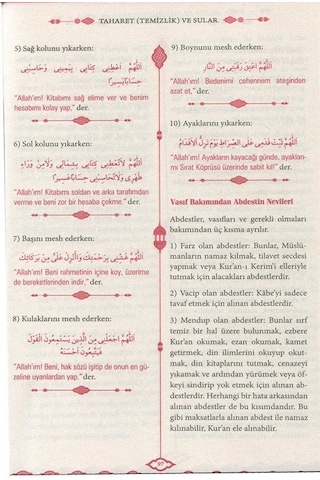 TAHARET (TEMİZLİK) VE SULAR
5) Sağ kolunu yıkarken:
اَللّٰهُمَّ اَعْطِنِي كِتَابِي بِيَمِينِي وَحَاسِبْنِي
حِسَابًا يَسِيرًا
"Allah'ım! Kitabımı sağ elime ver ve benim
hesabımı kolay yap," der.
6) Sol kolunu yıkarken:
اَللّٰهُمَّ لَاتُعْطِنِي كِتَابِي بِشِمَالِي وَلَامِنْ وَرَاءِ
ظَهْرِي وَلَاتُحَاسِبْنِي حِسَابًا شَدِيدًا
"Allah'ım! Kitabımı soldan ve arka tarafımdan
verme ve beni zor bir hesaba çekme." der.
7) Başını mesh ederken:
اَللّٰهُمَّ غَشِّنِي بِرَحْمَتِكَ وَاَنْزِلْ عَلَيَّ مِنْ بَرَكَاتِكَ
"Allah'ım! Beni rahmetinin içine koy, üzerime
de bereketlerinden indir," der.
8) Kulaklarını mesh ederken:
اَللّٰهُمَّ اجْعَلْنِي مِنَ الَّذِينَ يَسْتَمِعُونَ الْقَوْلَ
فَيَتَّبِعُونَ اَحْسَنَهُ
"Allah'ım! Beni, hak sözü işitip de onun en gü-
zeline uyanlardan yap." der.
9) Boynunu mesh ederken:
اَللّٰهُمَّ اَعْتِقْ رَقَبَتِي مِنَ النَّارِ
"Allah'ım! Bedenimi cehennem ateşinden
azat et," der.
10) Ayaklarını yıkarken:
اَللّٰهُمَّ ثَبِّتْ قَدَمَيَّ عَلَى الصِّرَاطِ يَوْمَ تَزِلُّ الْاَقْدَامُ
"Allah'ım! Ayakların kayacağı günde, ayakları-
mı Sırat Köprüsü üzerinde sabit kıl!" der.
Vasıf Bakımından Abdestin Nevileri
Abdestler, vasıfları ve gerekli olmaları
bakımından üç kısma ayrılır.
1) Farz olan abdestler: Bunlar, Müslü-
manların namaz kılmak, tilavet secdesi
yapmak veya Kur'an-ı Kerim'i elleriyle
tutmak için alacakları abdestlerdir.
2) Vacip olan abdestler: Kâbe'yi sadece
tavaf etmek için alınan abdestlerdir.
3) Mendup olan abdestler: Bunlar sırf
temiz bir hal üzere bulunmak, ezbere
Kur'an okumak, ezan okumak, kamet
getirmek, din ilimlerini okuyup okut-
mak, din kitaplarını tutmak, cenazeyi
yıkamak ve ardından yürümek veya öf-
keyi sindirip yok etmek için alınan ab-
destlerdir. Herhangi bir hata arkasından
alınan abdestler de bu kısımdandır. Bu
gibi maksatlarla alınan abdest ile namaz
kılınabilir, Kur'an ele alınabilir.
97